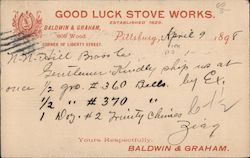 GOOD LUCK STOVE WORKS.
ESTABLISHED 1829.
BALDWIN & GRAHAM,
Wood
CORNER OF LIBERTY STREET.
Pittsburg, April 9 1898
N.N. Hill Brass Co
Gentlemen Kindly ship us at
once 1/2 gro. # 360 Bells. by Ex.
1/2 " # 370 "
1 Doz. # 2 Trinity Chimes
Yours Respectfully,
BALDWIN & GRAHAM.